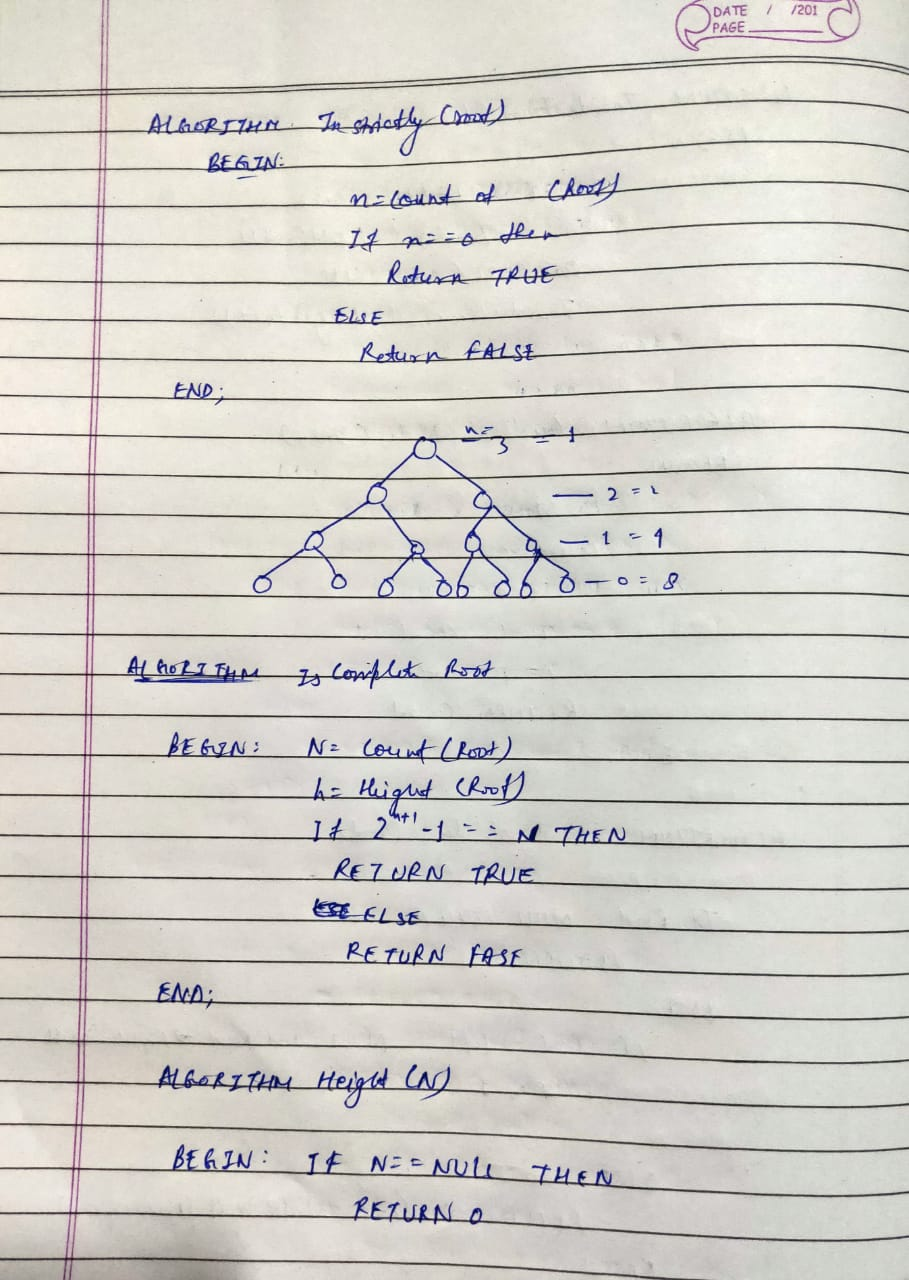 DATE / /201
PAGE
ALGORITHM In strictly (root)
BEGIN:
n=Count of (Root)
If n==0 then
Return TRUE
ELSE
Return FALSE
END;
n=3 = 1
— 2 = 2
— 1 = 4
— 0 = 8
ALGORITHM Is Complete Root
BEGIN: N= Count (Root)
h= Height (Root)
If 2^h+1 -1 == N THEN
RETURN TRUE
ELSE
RETURN FASE
END;
ALGORITHM Height (N)
BEGIN: If N==NULL THEN
RETURN 0